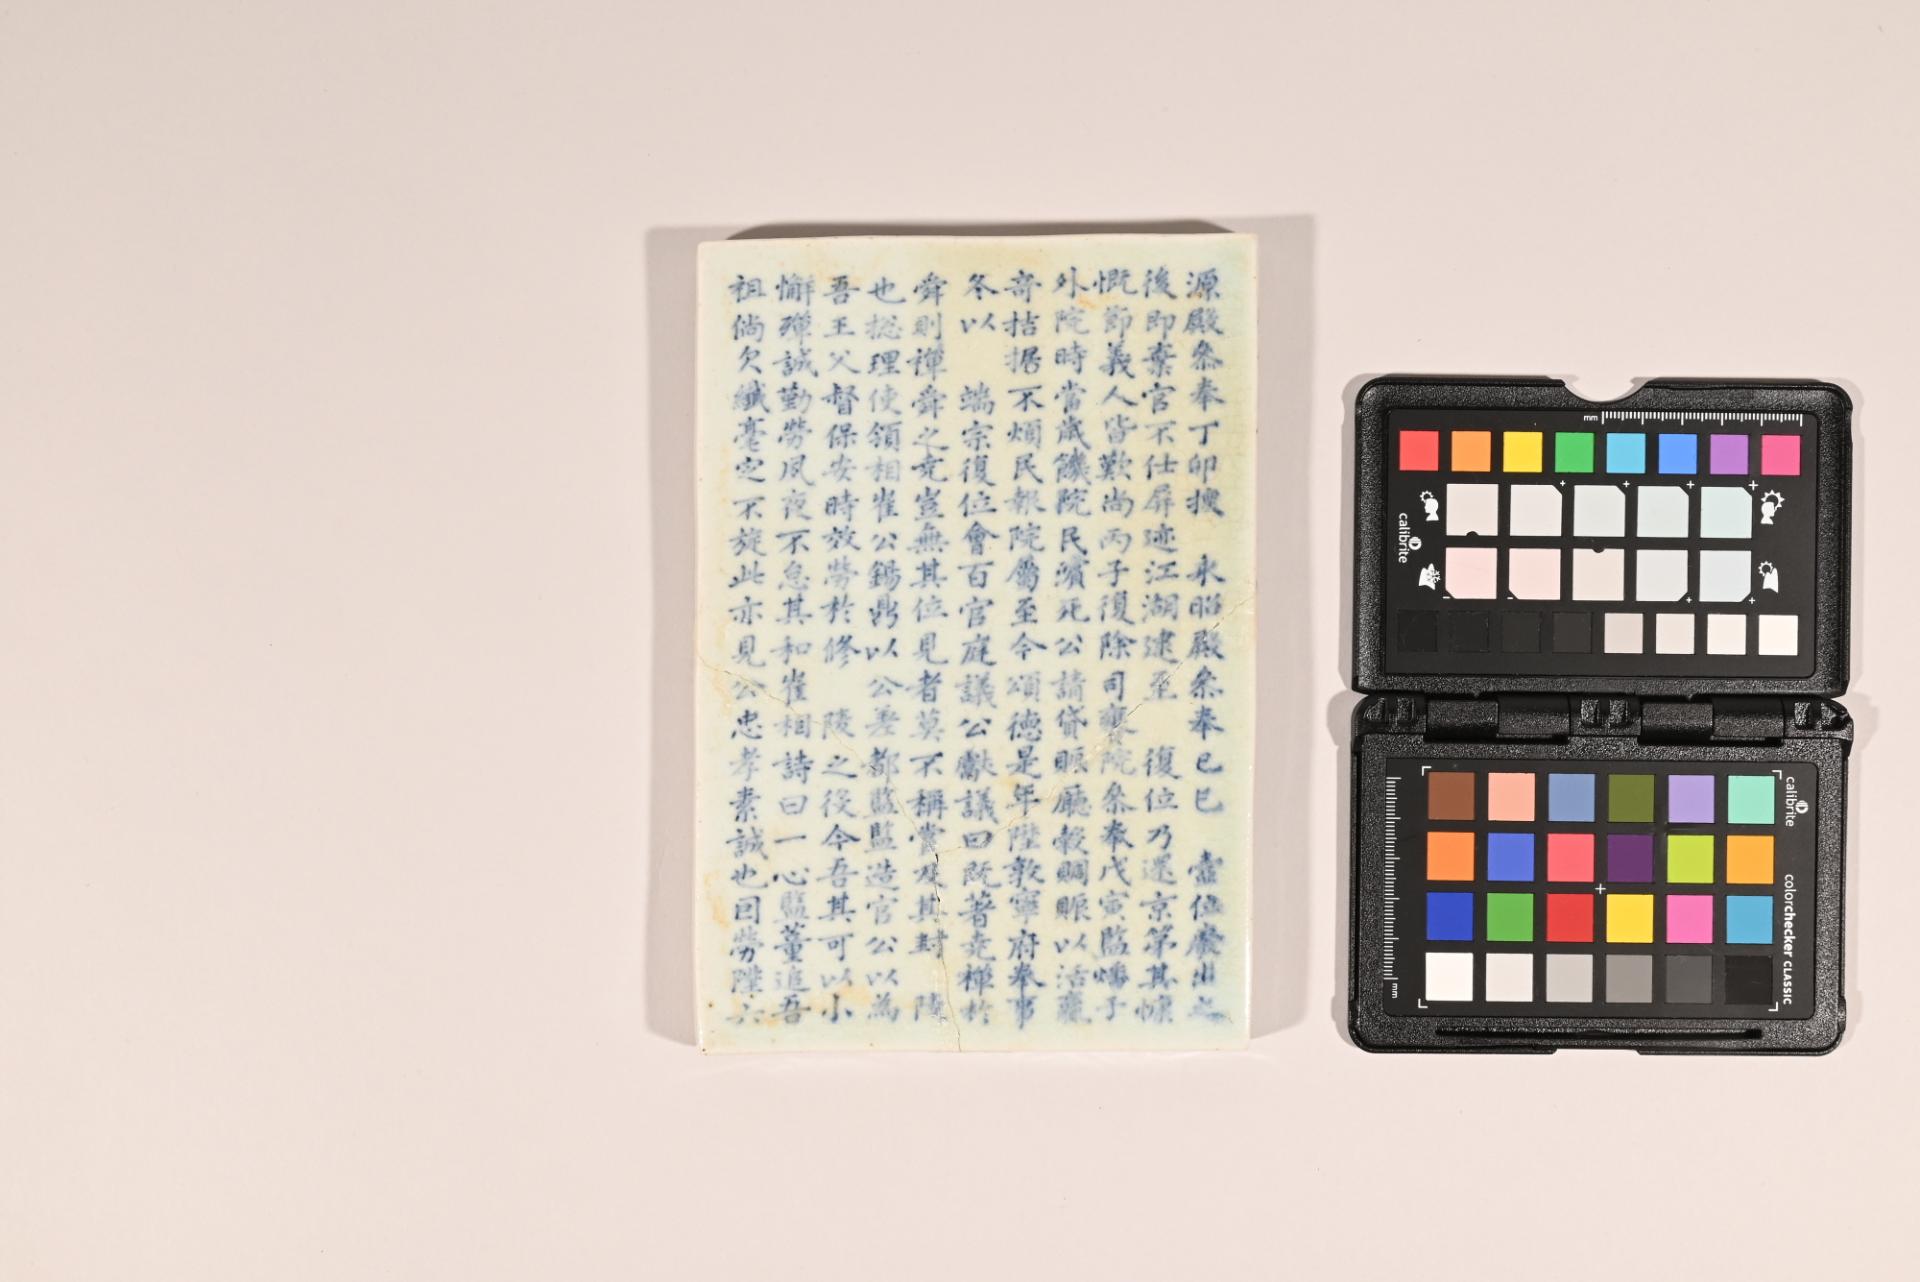 源殿叅奉丁卯擢 永昭殿叅奉己巳 壼位廢出之
後即棄官不仕屏迹江湖逮至 復位乃還京第其慷
慨節義人皆歎尚丙子復除司饔院叅奉戊寅監燔于
外院時當歲饑院民濱死公請貸賑廳穀賙賑以活窺
奇拮据不煩民報院屬至今頌德是年陞敦寧府奉事
冬以 端宗復位會百官庭議公獻議曰旣著堯禪於
舜則禪舜之堯豈無其位見者莫不稱賞及其封 陵
也摠理使領相崔公錫鼎以公差都監監造官公以爲
吾王父督保安時效勞於修 陵之役今吾其可以小
懈殫誠勤勞夙夜不怠其和崔相詩曰一心監董追吾
祖倘欠纖毫定不旋此亦見公忠孝素誠也因勞陞六
mm
calibrite
calibrite
colorchecker CLASSIC
mm